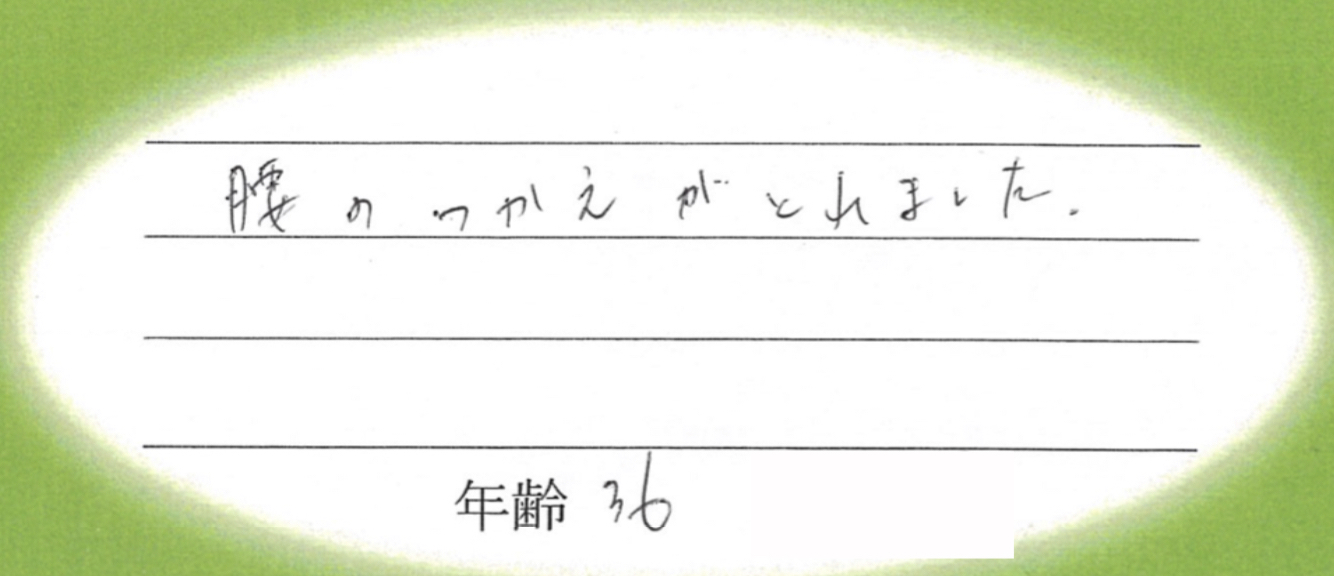 腰のつかえがとれました.
年齢 36